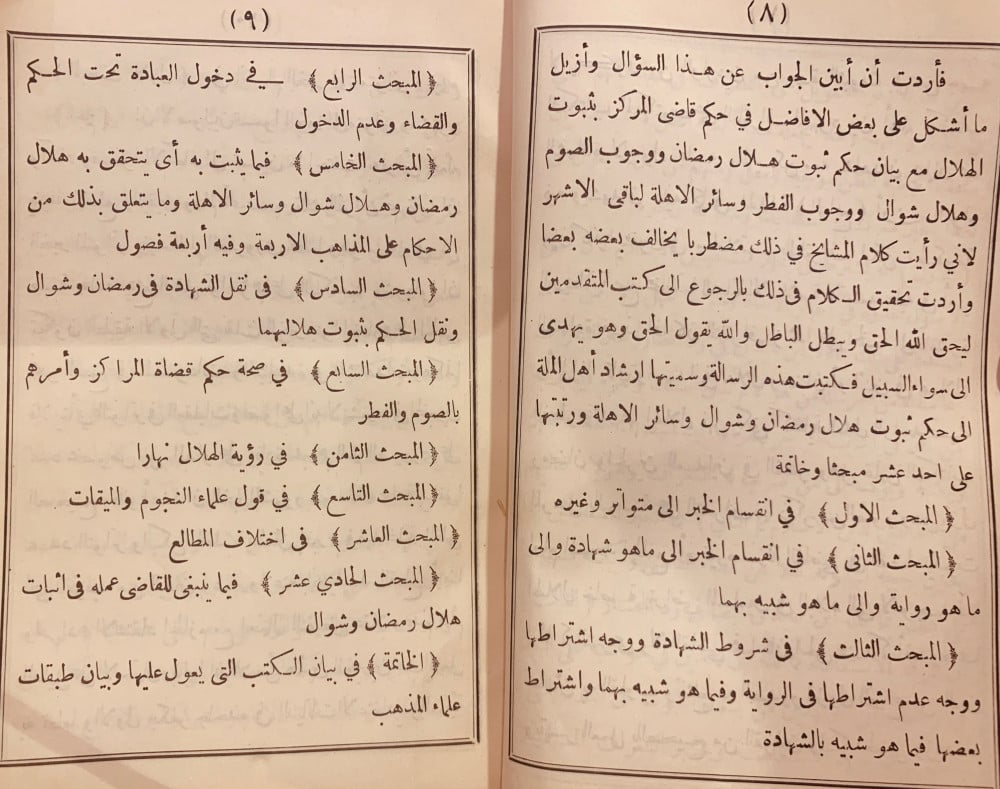 (٨)
فأردت أن أبين الجواب عن هذا السؤال وأزيل
ما أشكل على بعض الافاضل في حكم قاضى المركز بثبوت
الهلال مع بيان حكم ثبوت هلال رمضان ووجوب الصوم
وهلال شوال ووجوب الفطر وسائر الاهلة لباقى الاشهر
لاني رأيت كلام المشايخ في ذلك مضطربا يخالف بعضه بعضا
وأردت تحقيق الكلام فى ذلك بالرجوع الى كتب المتقدمين
ليحق الله الحق ويبطل الباطل والله يقول الحق وهو يهدى
الى سواء السبيل فكتبت هذه الرسالة وسميتها ارشاد أهل الملة
الى حكم ثبوت هلال رمضان وشوال وسائر الاهلة ورتبتها
على احد عشر مبحثا وخاتمة
﴿المبحث الاول﴾ في انقسام الخبر الى متواتر وغيره
﴿المبحث الثانى﴾ في انقسام الخبر الى ماهو شهادة والى
ما هو رواية والى ما هو شبيه بهما
﴿المبحث الثالث﴾ فى شروط الشهادة ووجه اشتراطها
ووجه عدم اشتراطها فى الرواية وفيما هو شبيه بهما واشتراط
بعضها فيما هو شبيه بالشهادة
(٩)
﴿المبحث الرابع﴾ في دخول العبادة تحت الحكم
والقضاء وعدم الدخول
﴿المبحث الخامس﴾ فيما يثبت به أى يتحقق به هلال
رمضان وهلال شوال وسائر الاهلة وما يتعلق بذلك من
الاحكام على المذاهب الاربعة وفيه أربعة فصول
﴿المبحث السادس﴾ فى نقل الشهادة فى رمضان وشوال
ونقل الحكم بثبوت هلاليهما
﴿المبحث السابع﴾ في صحة حكم قضاة المراكز وأمرهم
بالصوم والفطر
﴿المبحث الثامن﴾ في رؤية الهلال نهارا
﴿المبحث التاسع﴾ في قول علماء النجوم والميقات
﴿المبحث العاشر﴾ فى اختلاف المطالع
﴿المبحث الحادي عشر﴾ فيما ينبغى للقاضى عمله فى اثبات
هلال رمضان وشوال
﴿الخاتمة﴾ في بيان الكتب التى يعول عليها وبيان طبقات
علماء المذهب